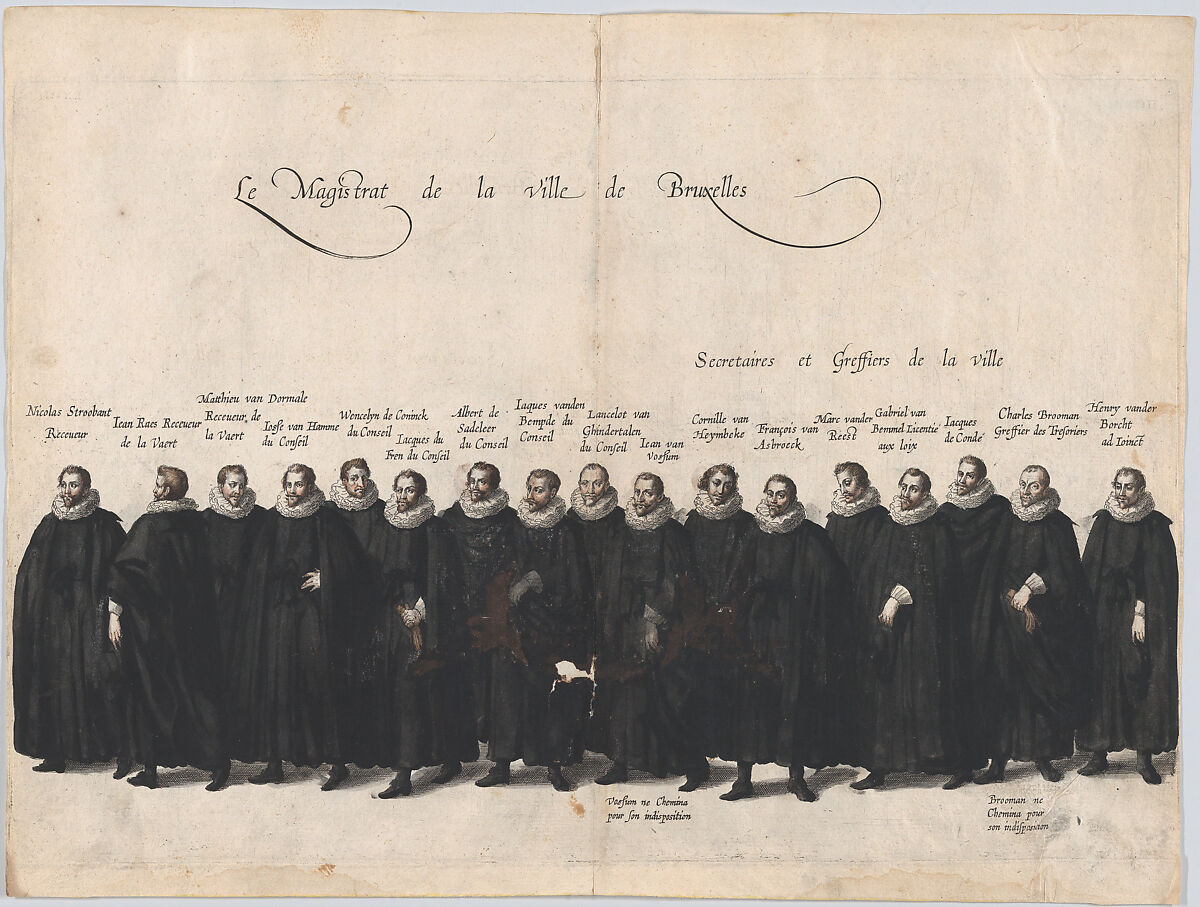 Le Magistrat de la ville de Bruxelles
Secretaires et Greffiers de la ville
Nicolas Stroobant
Receueur
Iean Raes Receueur
de la Vaert
Matthieu van Dormale
Receueur de
la Vaert
Iosse van Hamme
du Conseil
Wencelyn de Coninck
du Conseil
Iacques du
Fren du Conseil
Albert de
Sadeleer
du Conseil
Iaques vanden
Bempde du
Conseil
Lancelot van
Ghindertalen
du Conseil
Iean van
Vossum
Cornille van
Heymbeke
François van
Asbroeck
Marc vander
Reest
Gabriel van
Bemmel Licentie
aux loix
Iacques
de Condé
Charles Brooman
Greffier des Tresoriers
Henry vander
Borcht
ad Ioinct
Vossum ne Chemina
pour son indisposition
Brooman ne
Chemina pour
son indisposition